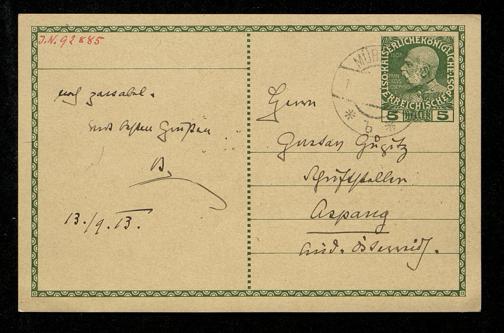 J.N. 92885
noch passabel.
Mit besten Grüßen
B.
13./9. 13.
KAISERLICHE KÖNIGLICHE
ÖSTERREICHISCHE
5 HELLER 5
MÜR
b
Herrn
Gustav Gugitz
Schriftsteller
Aspang
Nied. Österreich.